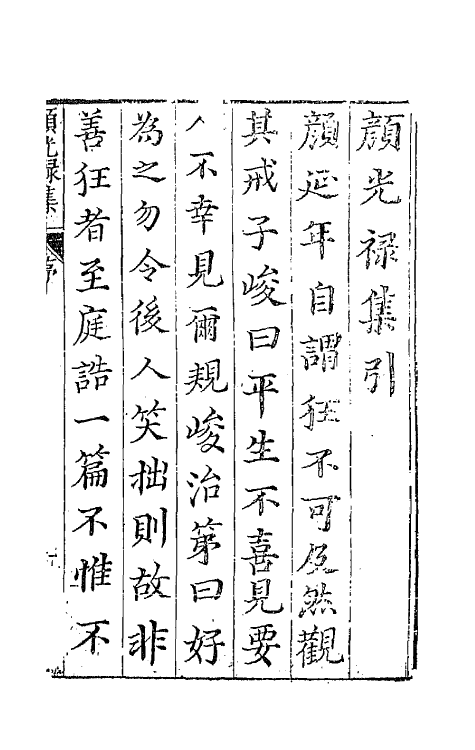 顔光禄集引
顔延年自謂狂不可及然觀
其戒子峻曰平生不喜見要
人不幸見爾規峻治第曰好
為之勿令後人笑拙則故非
善狂者至庭誥一篇不惟不
顔光禄集 序